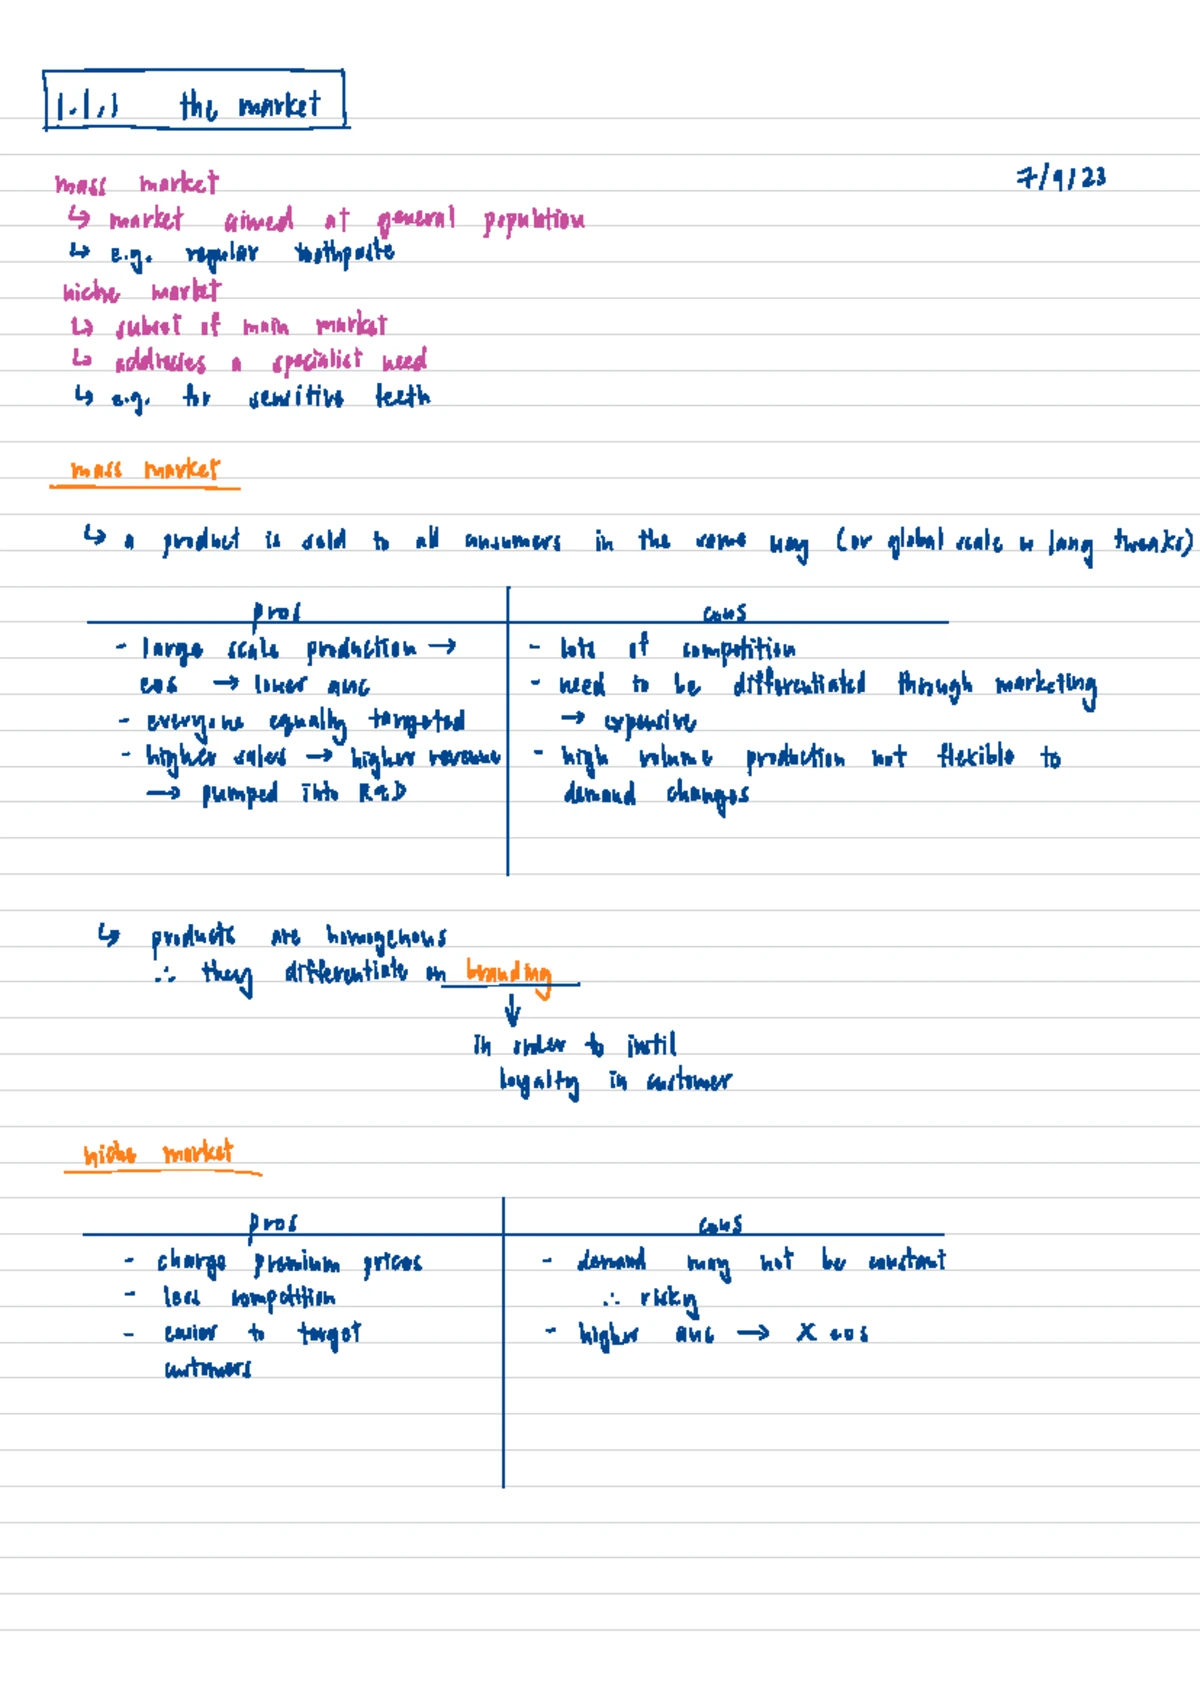 1.1.1 the market
7/9/23
mass market
↳ market aimed at general population
↳ e.g. regular toothpaste
niche market
↳ subset of main market
↳ addresses a specialist need
↳ e.g. for sensitive teeth
mass market
↳ a product is sold to all consumers in the same way (or global scale w lang tweaks)
pros
- large scale production →
eos → lower auc
- everyone equally targeted
- higher sales → higher revenue
→ pumped into R&D
cons
- lots of competition
- need to be differentiated through marketing
→ expensive
- high volume production not flexible to
demand changes
↳ products are homogenous
∴ they differentiate on branding
↓
in order to instil
loyalty in customer
niche market
pros
- charge premium prices
- less competition
- easier to target
customers
cons
- demand may not be constant
∴ risky
- higher auc → X eos